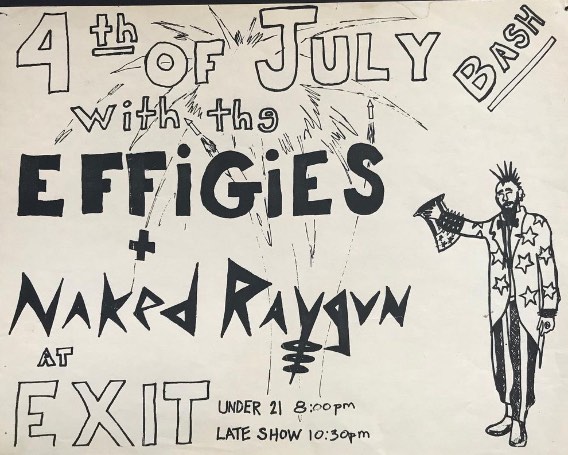 4th OF JULY
BASH
with the
EFFiGiES
+
Naked Raygun
AT
EXIT
UNDER 21 8:00pm
LATE SHOW 10:30pm